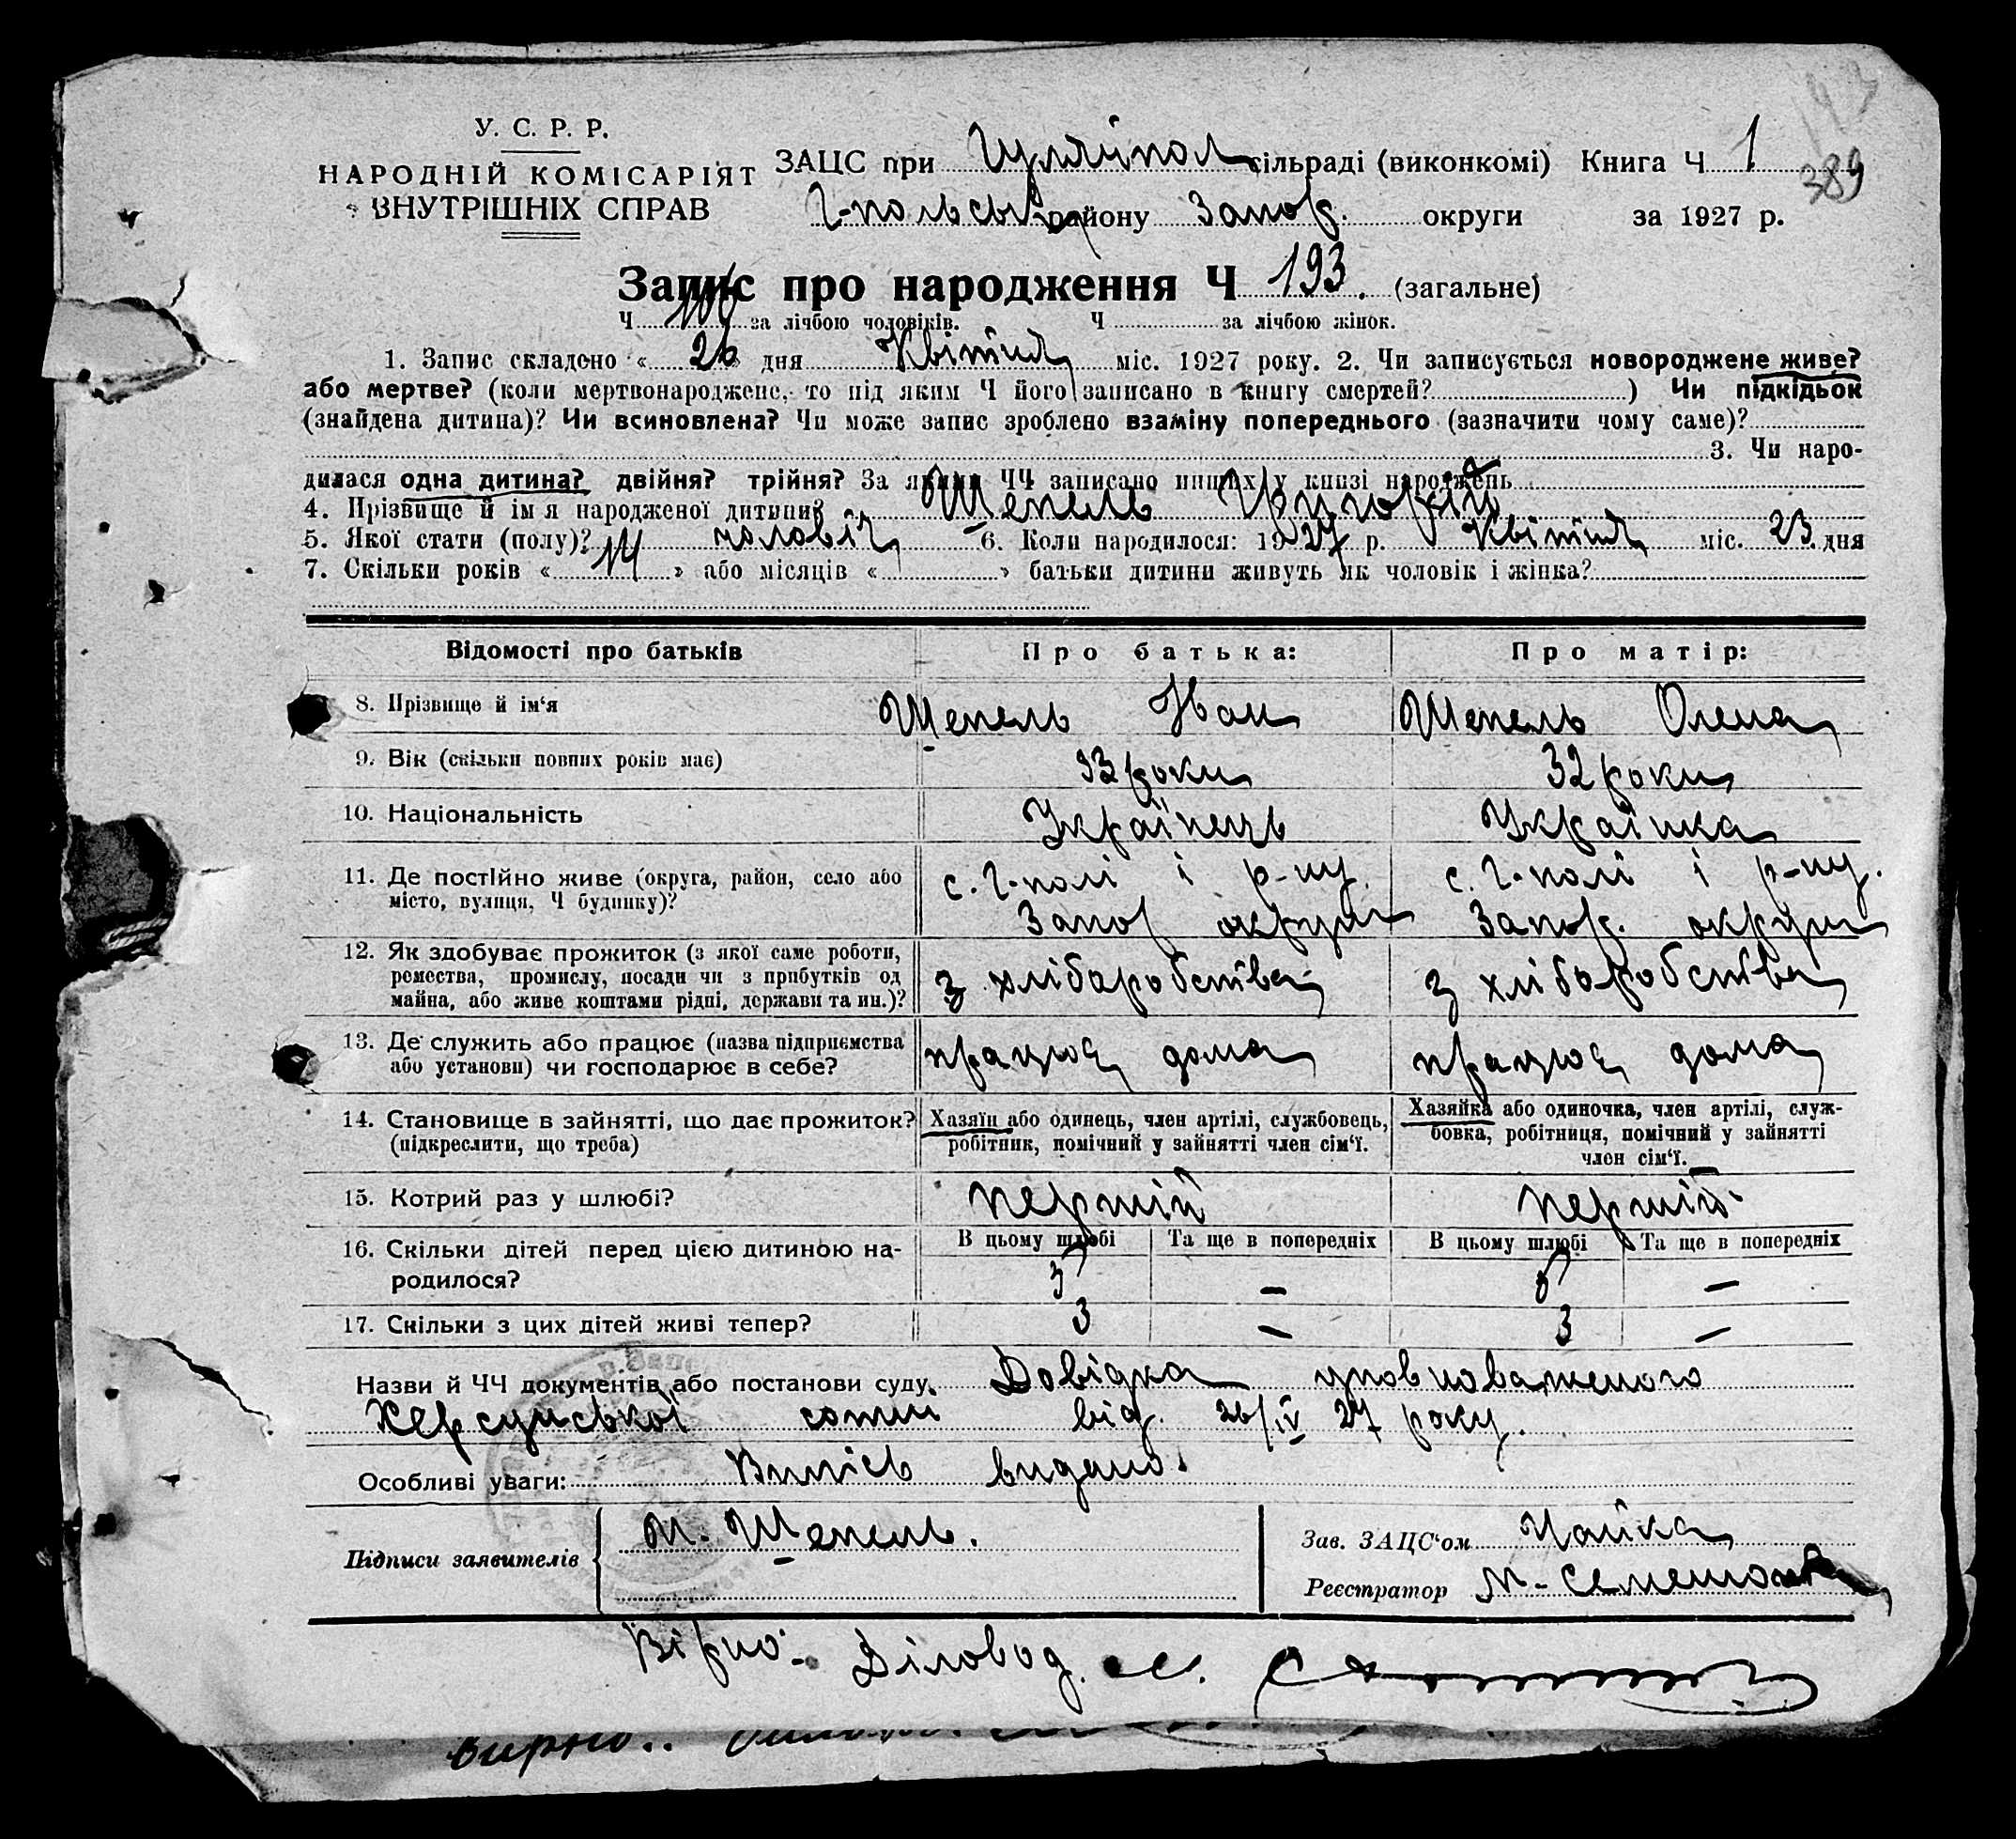 У. С. Р. Р.
НАРОДНІЙ КОМІСАРІЯТ
ВНУТРІШНІХ СПРАВ
ЗАЦС при Гуляйпол сільраді (виконкомі) Книга Ч 1
389
Г-польськ району Запор. округи за 1927 р.
Запис про народження Ч 193. (загальне)
Ч за лічбою чоловіків. Ч за лічбою жінок.
1. Запис складено « 26 » дня Квітня міс. 1927 року. 2. Чи записується новороджене живе?
або мертве? (коли мертвонароджене, то під яким Ч його записано в книгу смертей? ) Чи підкідьок
(знайдена дитина)? Чи всиновлена? Чи може запис зроблено взаміну попереднього (зазначити чому саме)?
3. Чи наро-
дилася одна дитина? двійня? трійня? За якими ЧЧ записано инших у книзі народжень
4. Прізвище й ім'я народженої дитини? Шепель Григорій
5. Якої стати (полу)? чоловіч 6. Коли народилося: 1927 р. Квітня міс. 23 дня
7. Скільки років « 14 » або місяців « » батьки дитини живуть як чоловік і жінка?
Відомості про батьків Про батька: Про матір:
8. Прізвище й ім'я Шепель Іван Шепель Олена
9. Вік (скільки повних років має) 33 роки 32 роки
10. Національність Українець Українка
11. Де постійно живе (округа, район, село або місто, вулиця, Ч будинку)? с. Г-полі і р-ну. с. Г-полі і р-ну.
Запор округи Запор. округи
12. Як здобуває прожиток (з якої саме роботи,
ремества, промислу, посади чи з прибутків од
майна, або живе коштами рідні, держави та ин.)? з хліборобства з хліборобства
13. Де служить або працює (назва підприємства
або установи) чи господарює в себе? працює дома працює дома
14. Становище в зайнятті, що дає прожиток?
(підкреслити, що треба)
Хазяїн або одинець, член артілі, службовець,
робітник, помічний у зайнятті член сім'ї.
Хазяйка або одиночка, член артілі, служ-
бовка, робітниця, помічний у зайнятті
член сім'ї.
15. Котрий раз у шлюбі? першій першій
16. Скільки дітей перед цією дитиною на-
родилося?
В цьому шлюбі Та ще в попередніх В цьому шлюбі Та ще в попередніх
5 – 5 –
17. Скільки з цих дітей живі тепер? 3 – 3 –
Назви й ЧЧ документів або постанови суду Довідка уповноваженого
Херсунської сотні від. 26/IV 27 року.
Особливі уваги: Випісь видано.
Підписи заявителів М. Шепель.
Зав. ЗАЦС'ом Чайка
Реєстратор М-
Вірно: Діловод.